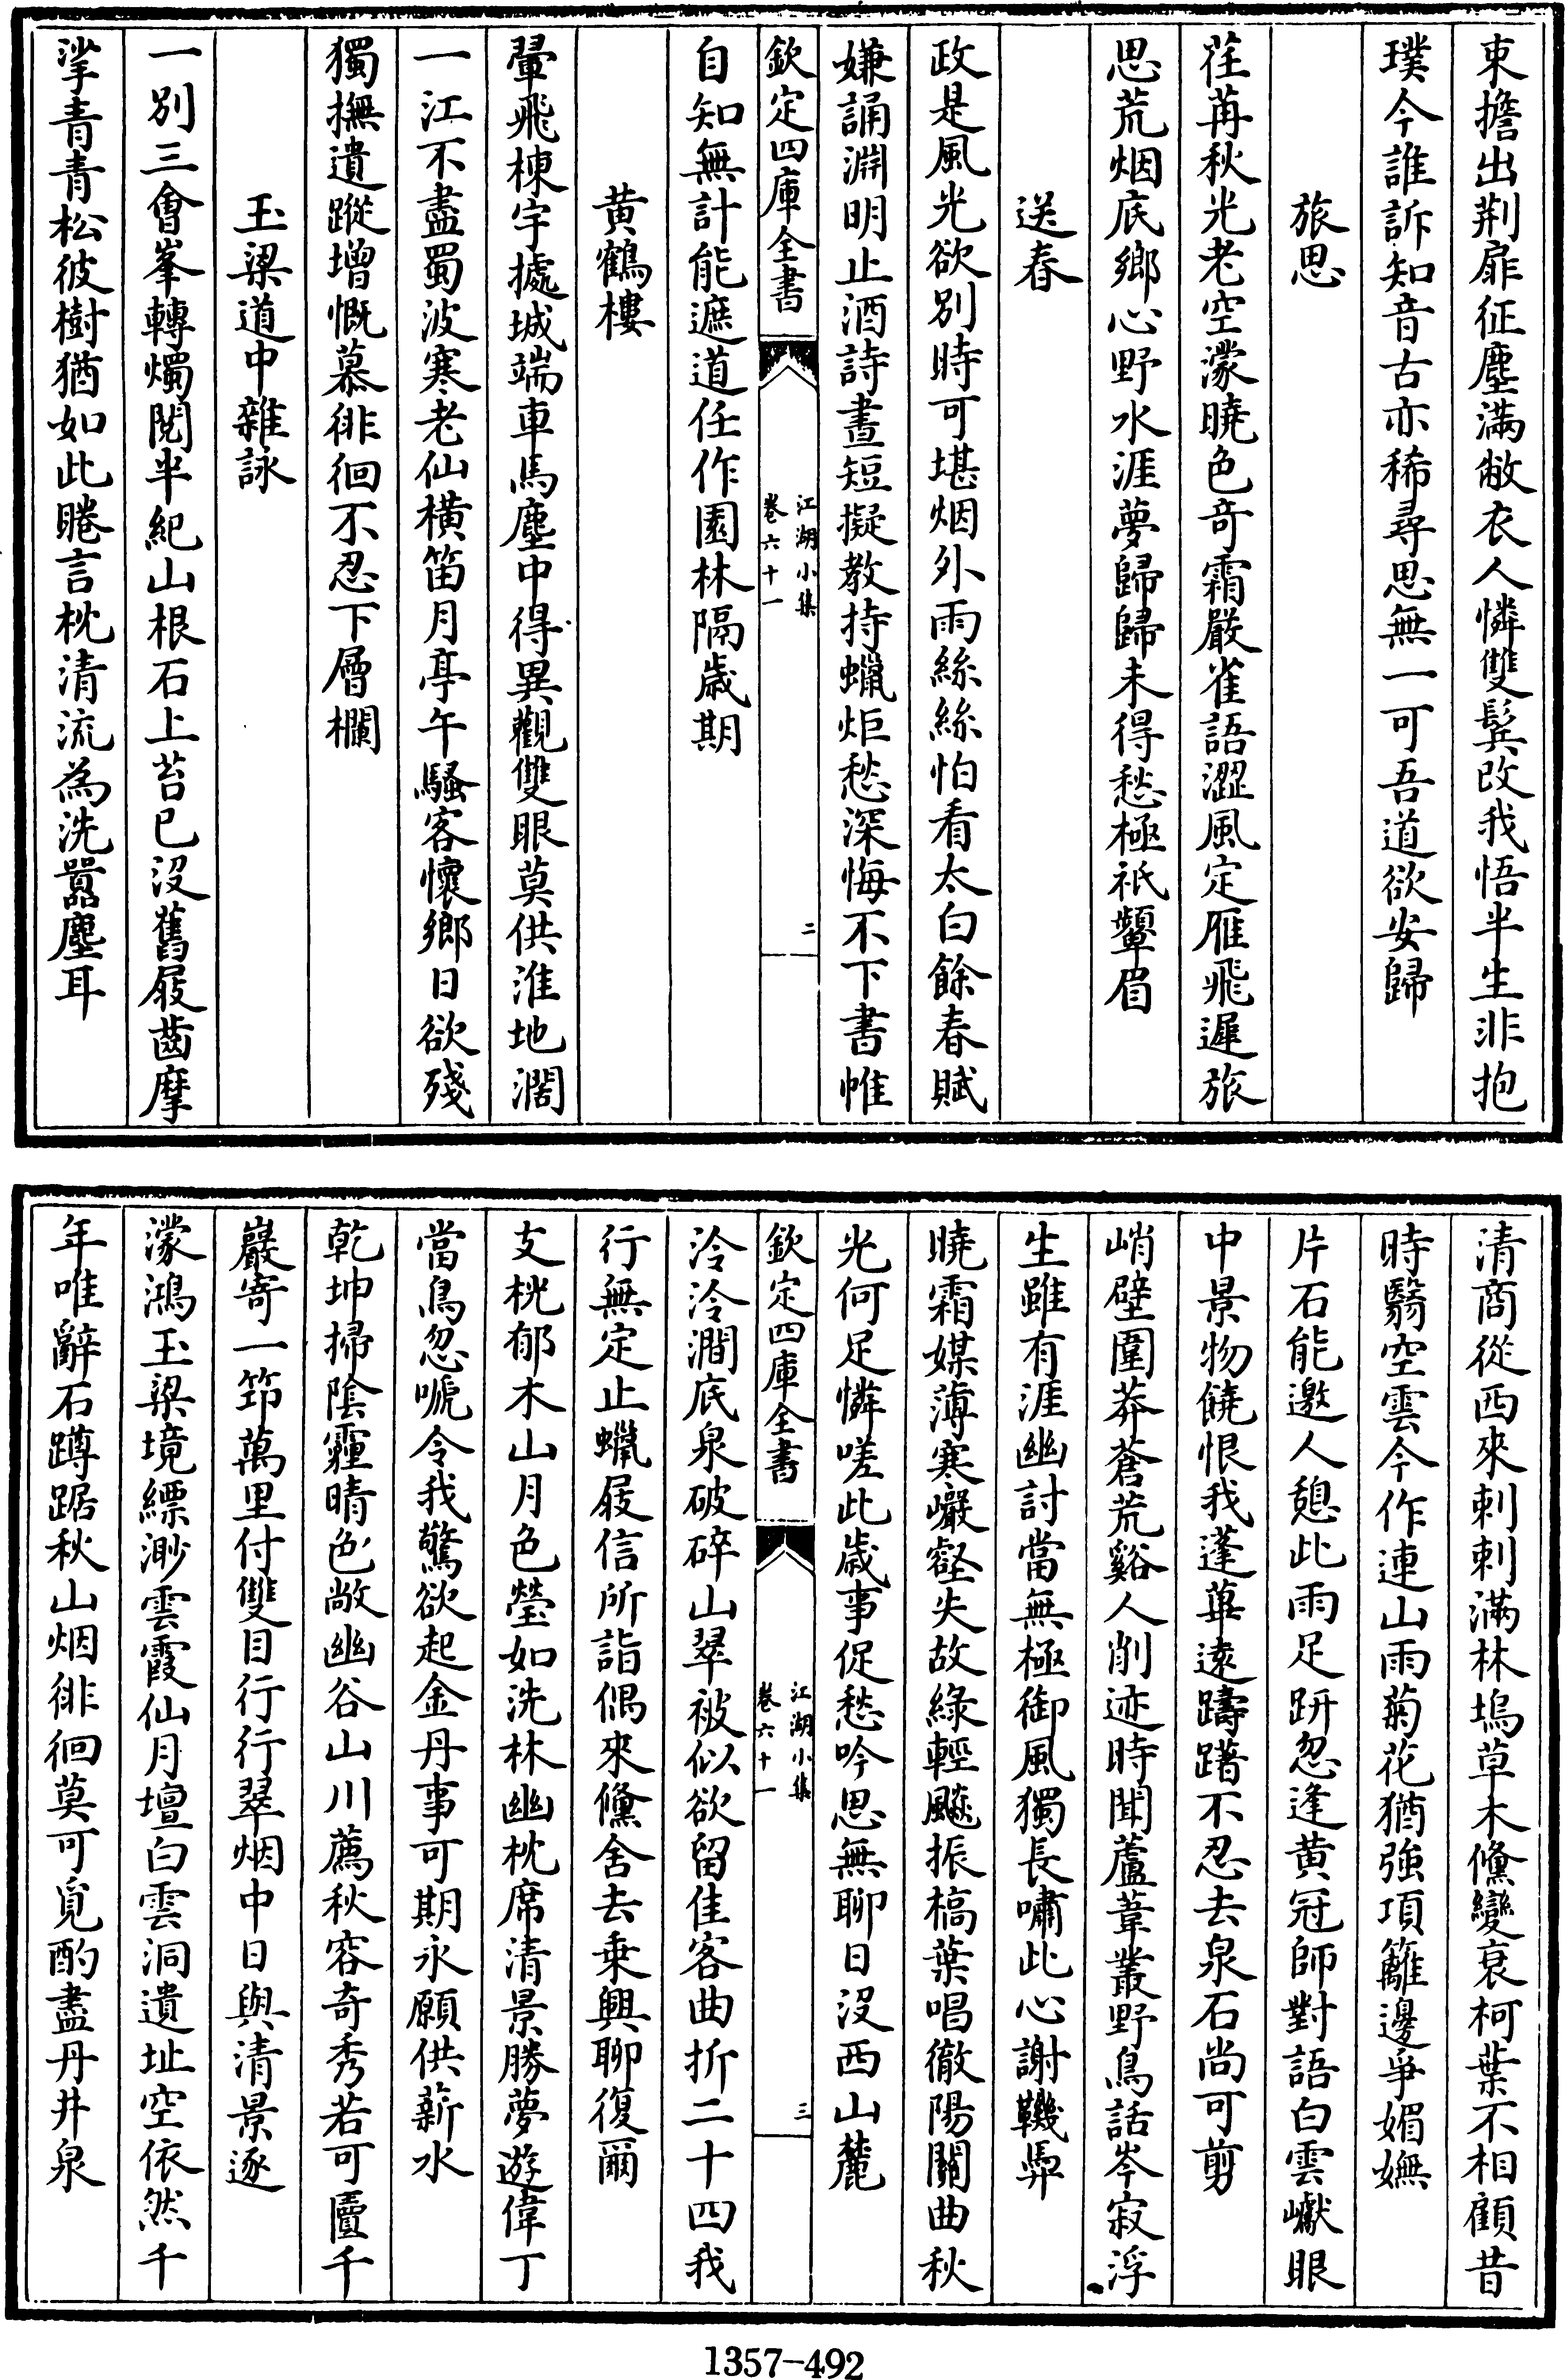 束擔出荆扉征塵滿敝衣人憐雙鬓改我悟半生非抱
璞今誰訴知音古亦稀尋思無一可吾道欲安歸
旅思
荏苒秋光老空濛曉色竒霜嚴雀語澀風定雁飛遲旅
思荒烟底鄉心野水涯夢歸歸未得愁極衹顰眉
送春
政是風光欲别時可堪烟外雨絲絲怕看太白餘春賦
嫌誦淵明止酒詩晝短擬教持蠟炬愁深悔不下書帷
欽定四庫全書
江湖小集
卷六十一
二
自知無計能遮道任作園林隔歲期
黄鶴樓
翬飛棟宇據城端車馬塵中得異觀雙眼莫供淮地濶
一江不盡蜀波寒老仙橫笛月亭午騷客懷鄉日欲殘
獨撫遺蹤增慨慕徘徊不忍下層欄
玉梁道中雜詠
一别三會峯轉燭閲半紀山根石上苔已没舊屐齒摩
挲青青松彼樹猶如此睠言枕清流為洗囂塵耳
清商從西來刺刺滿林塢草木儵變衰柯葉不相顧昔
時翳空雲今作連山雨菊花猶強項籬邊爭媚嫵
片石能邀人憩此雨足趼忽逢黄冠師對語白雲巘眼
中景物饒恨我蓬蓽遠躊躇不忍去泉石尚可剪
峭壁圍莽蒼荒谿人削迹時聞蘆葦叢野鳥話岑寂浮
生雖有涯幽討當無極御風獨長嘯此心謝鞿馽
曉霜媒薄寒巖壑失故綠輕飈振槁葉唱徹陽關曲秋
光何足憐嗟此歲事促愁吟思無聊日没西山麓
欽定四庫全書
江湖小集
卷六十一
三
泠泠澗底泉破碎山翠被似欲留佳客曲折二十四我
行無定止蠟屐信所詣偶來儵舍去乗興聊復爾
支桄郁木山月色瑩如洗林幽枕席清景勝夢遊偉丁
當鳥忽嗁令我驚欲起金丹事可期永願供薪水
乾坤掃陰霾晴色敞幽谷山川薦秋容奇秀若可匵千
巖寄一笻萬里付雙目行行翠烟中日與清景逐
濛鴻玉梁境縹渺雲霞仙月壇白雲洞遺址空依然千
年唯辭石蹲踞秋山烟徘徊莫可覓酌盡丹井泉
1357-492